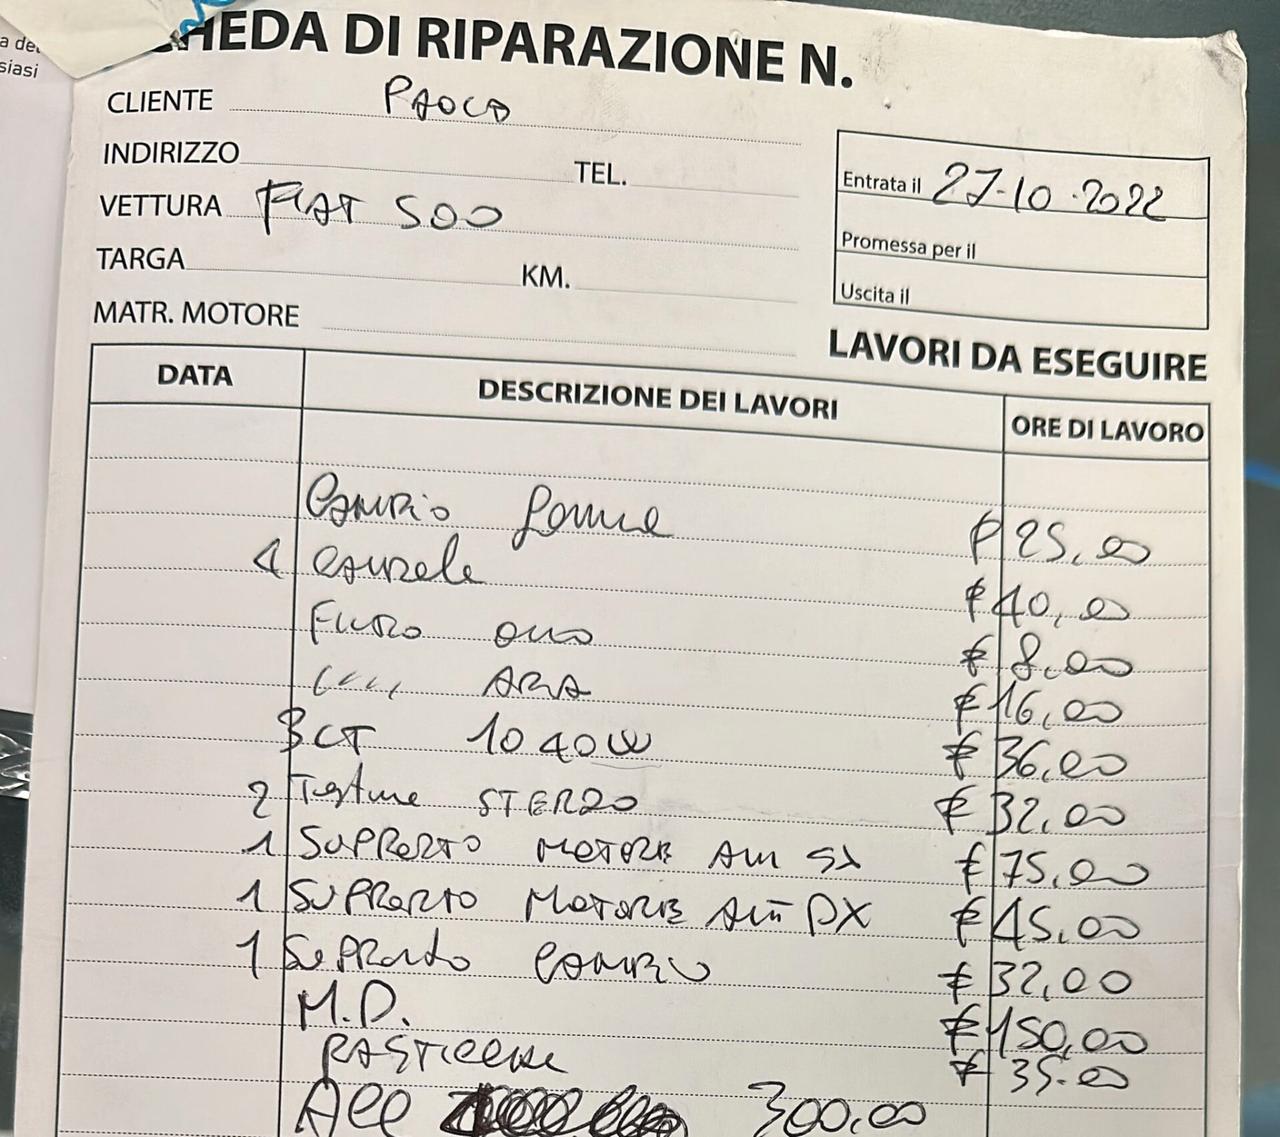 a del
siasi
HEDA DI RIPARAZIONE N.
CLIENTE PAOLO
INDIRIZZO TEL.
VETTURA FIAT 500
TARGA KM.
MATR. MOTORE
Entrata il 27-10-2022
Promessa per il
Uscita il
LAVORI DA ESEGUIRE
DATA DESCRIZIONE DEI LAVORI ORE DI LAVORO
CAMBIO gomme € 25,00
4 CANDELE € 40,00
FILTRO OLIO € 8,00
" ARIA € 16,00
3 LT 10 40W € 36,00
2 Testine STERZO € 32,00
1 SUPPORTO MOTORE ANT SX € 75,00
1 SUPPORTO MOTORE ANT DX € 45,00
1 SUPPORTO CAMBIO € 32,00
M.D. € 150,00
PASTICCHE € 35.00
ACC 300,00